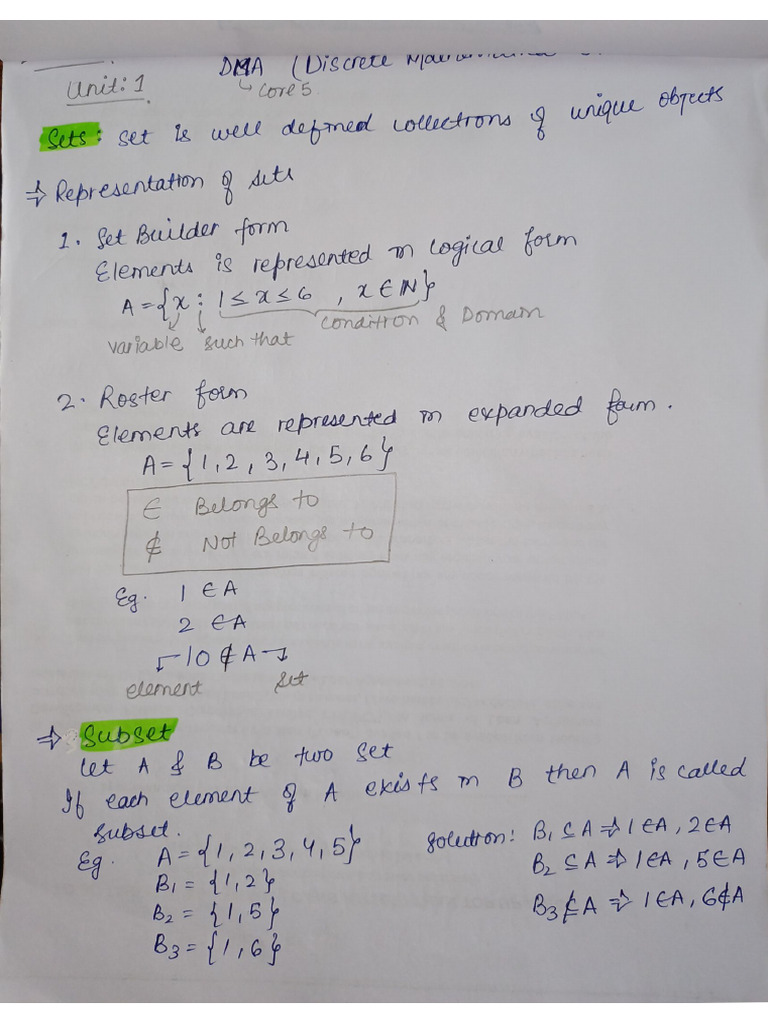 DMA (Discrete
Unit: 1
↳ Core 5
Sets: set is well defined collections of unique objects
⇒ Representation of sets
1. Set Builder form
Elements is represented in logical form
A = {x : 1 ≤ x ≤ 6 , x ∈ N}
condition & Domain
variable such that
2. Roster form
Elements are represented in expanded form.
A = {1, 2, 3, 4, 5, 6}
∈ Belongs to
∉ Not Belongs to
Eg. 1 ∈ A
2 ∈ A
10 ∉ A
element set
⇒ Subset
let A & B be two set
If each element of A exists in B then A is called
subset.
Eg. A = {1, 2, 3, 4, 5}
B₁ = {1, 2}
B₂ = {1, 5}
B₃ = {1, 6}
Solution: B₁ ⊆ A ⇒ 1 ∈ A, 2 ∈ A
B₂ ⊆ A ⇒ 1 ∈ A, 5 ∈ A
B₃ ⊈ A ⇒ 1 ∈ A, 6 ∉ A